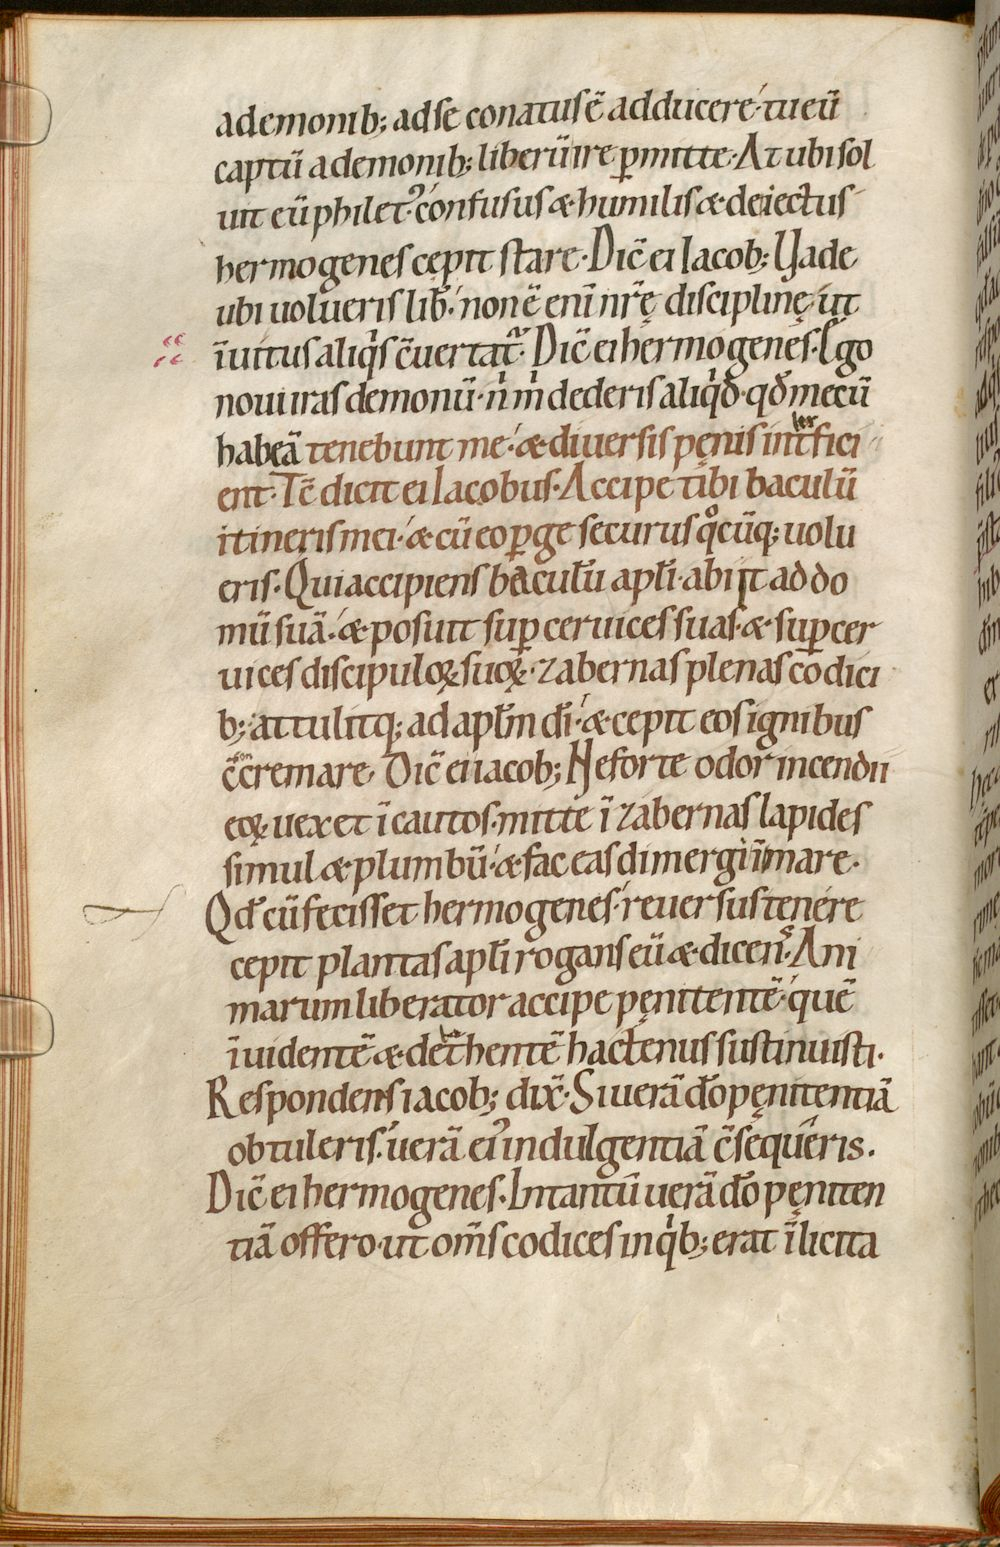 ademonib; adse conatus ē adducere· tu eū
captū ademonib; liberū ire ꝑmitte· At ubi sol
uit eū philet᾽· confusus æ humilis æ deiectus
hermogenes cepit stare· Dic̄ ei Iacob; Uade
ubi uolueris lib̄· non ē enī nr̄ę disciplinę ut
īuitus aliq̇s c̄uertat᷑· Dic̄ ei hermogenes· Ego
noui iras demonū· n̍ m̍ dederis aliq̍d· qđ mecū
habeā tenebunt me· æ diuersis pęnis int̄fici
ent· Tc̄ dicit ei Iacobus· Accipe tibi baculū
itineris mei· æ cū eo ꝑge securus q°cūq; uolu
eris· Qui accipiens baculūm apłi· abiit ad do
mū suā· æ posuit suꝑ ceruices suas· æ suꝑ cer
uices discipuloꝝ suoꝝ· zabernas plenas codici
b; attulitq; ad apłm dn̄i· æ cepit eos ignibus
c̄cremare· Dic̄ ei iacob; Ne forte odor incendii
eoꝝ uexet īcautos· mitte ī zabernas lapides
simul æ plumbū· æ fac eas dimergi in mare·
Qđ cū fecisset hermogenes· reuersus tenere
cepit plantas apłi rogans eū æ dicens· Ani
marum liberator accipe pęnitentē· quē
īuidentē æ det̄hentē hactenus sustinuisti·
Respondens iacob; dix̄· Si uerā dō pęnitentiā
obtuleris· uerā ei᾽ indulgentiā c̄sequeris.
Dic̄ ei hermogenes· Intantū uerā dō pęniten
tiā offero· ut om̄s codices in q̍b; erat īlicita